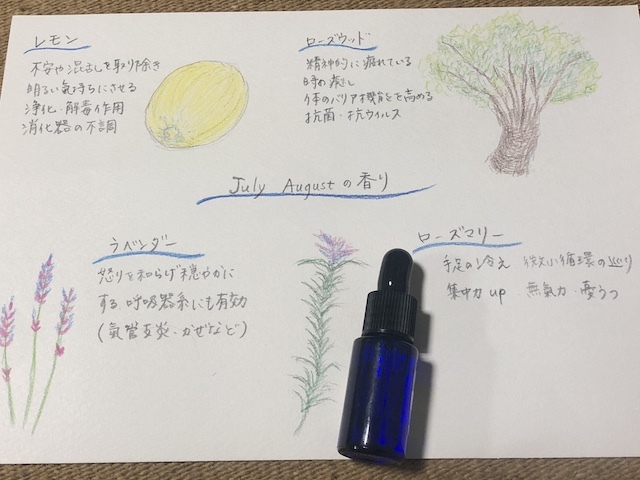 レモン
不安や混乱を取り除き
明るい気持ちにさせる
浄化・解毒作用
消化器の不調
ローズウッド
精神的に疲れている
時の癒し
体のバリア機能をを高める
抗菌・抗ウィルス
July Augustの香り
ラベンダー
怒りを和らげ穏やかに
する。呼吸器系にも有効
(気管支炎・かぜなど)
ローズマリー
手足の冷え 微小循環の巡り
集中力up 無気力・憂うつ